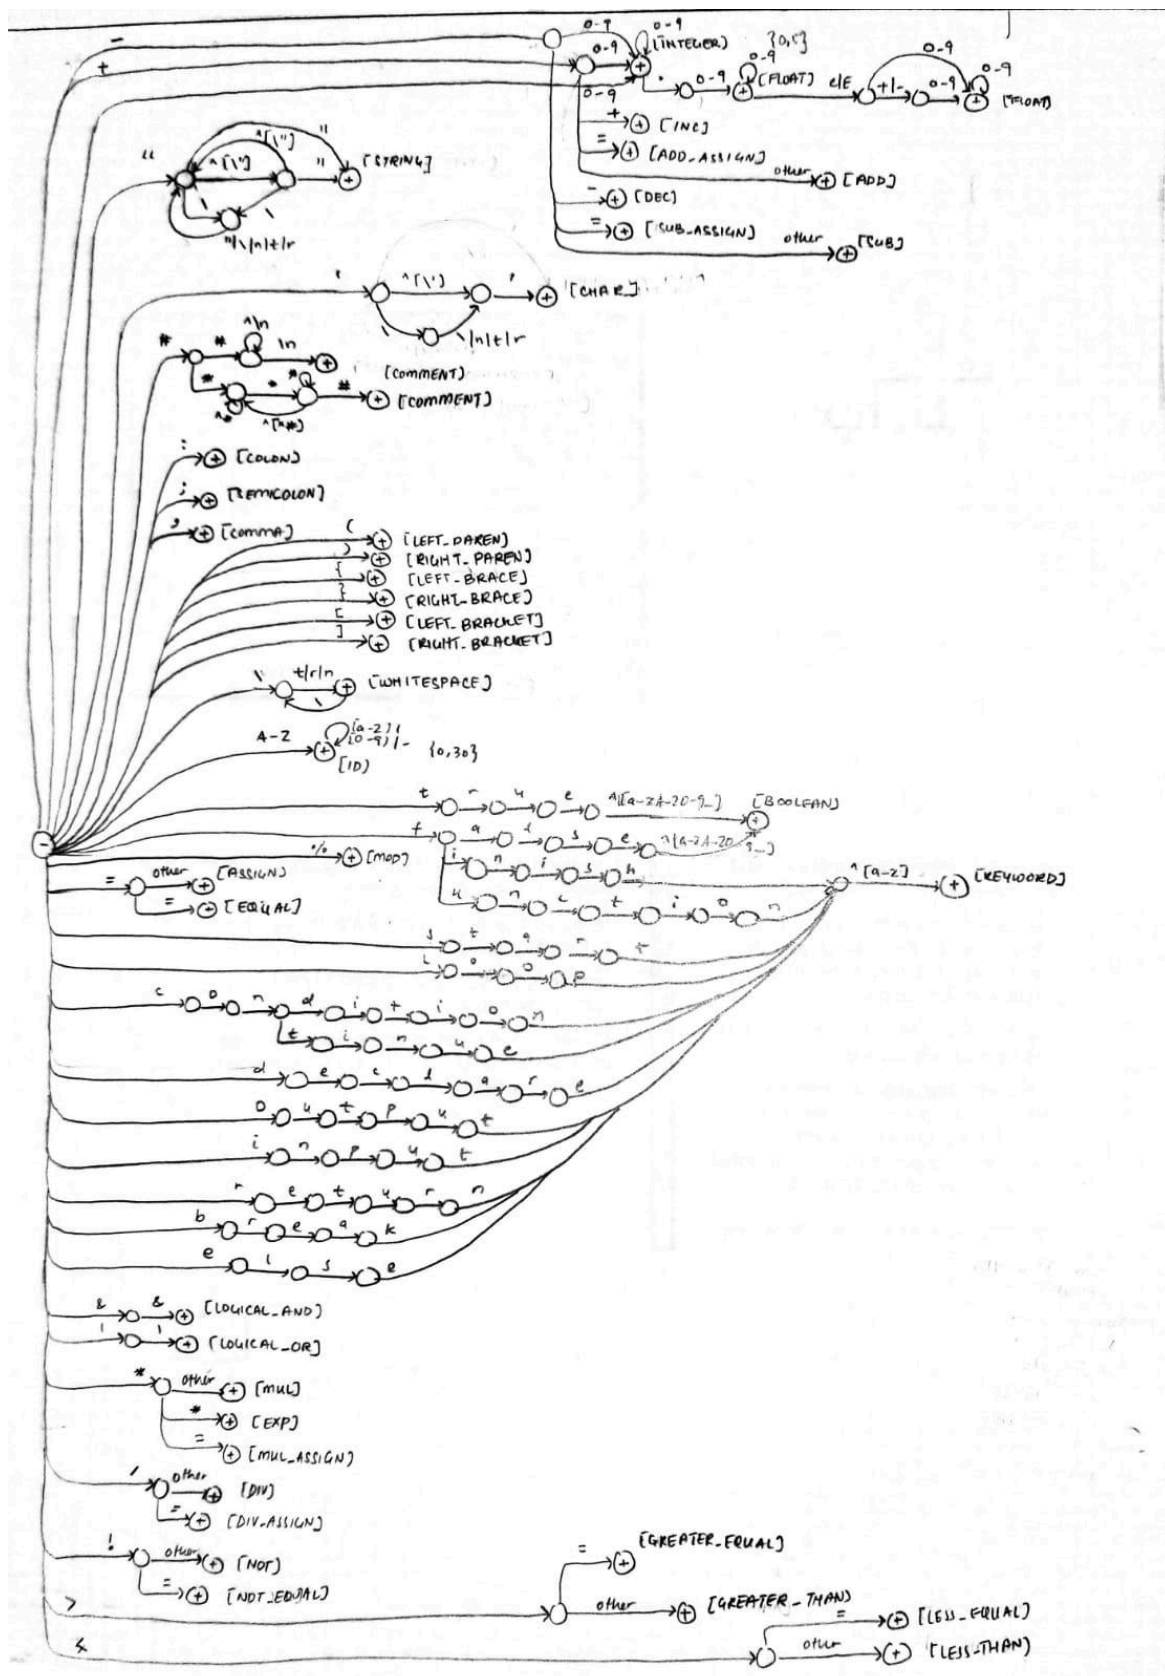 - 0-9 0-9 [INTEGER] {0,5}
+ 0-9 0-9 0-9
0-9 . 0-9 [FLOAT] e/E +|- 0-9 0-9 [FLOAT]
+ [INC]
= [ADD_ASSIGN]
other [ADD]
- [DEC]
= [SUB_ASSIGN]
other [SUB]
" ^[\"] ^[\"] " " [STRING]
\ \
"|\|n|t|r
' ^[\'] ' [CHAR]
\ \|n|t|r
# # ^\n \n [COMMENT]
* * * # [COMMENT]
^* ^[*#]
: [COLON]
; [SEMICOLON]
, [COMMA]
( [LEFT_PAREN]
) [RIGHT_PAREN]
{ [LEFT_BRACE]
} [RIGHT_BRACE]
[ [LEFT_BRACKET]
] [RIGHT_BRACKET]
\ t/r/n [WHITESPACE]
\
A-Z [a-z]|
(0-9)|_ {0,30}
[ID]
t r u e ^[a-zA-Z0-9_] [BOOLEAN]
f a l s e ^[a-zA-Z0-9_]
% [MOD]
i n i s h ^[a-z] [KEYWORD]
= other [ASSIGN]
= [EQUAL]
u n c t i o n
s t a r t
l o o p
c o n d i t i o n
t i n u e
d e c l a r e
o u t p u t
i n p u t
r e t u r n
b r e a k
e l s e
& & [LOGICAL_AND]
| | [LOGICAL_OR]
* other [MUL]
* [EXP]
= [MUL_ASSIGN]
/ other [DIV]
= [DIV_ASSIGN]
! other [NOT]
= [NOT_EQUAL]
= [GREATER_EQUAL]
> other [GREATER_THAN]
= [LESS_EQUAL]
< other [LESS_THAN]
-